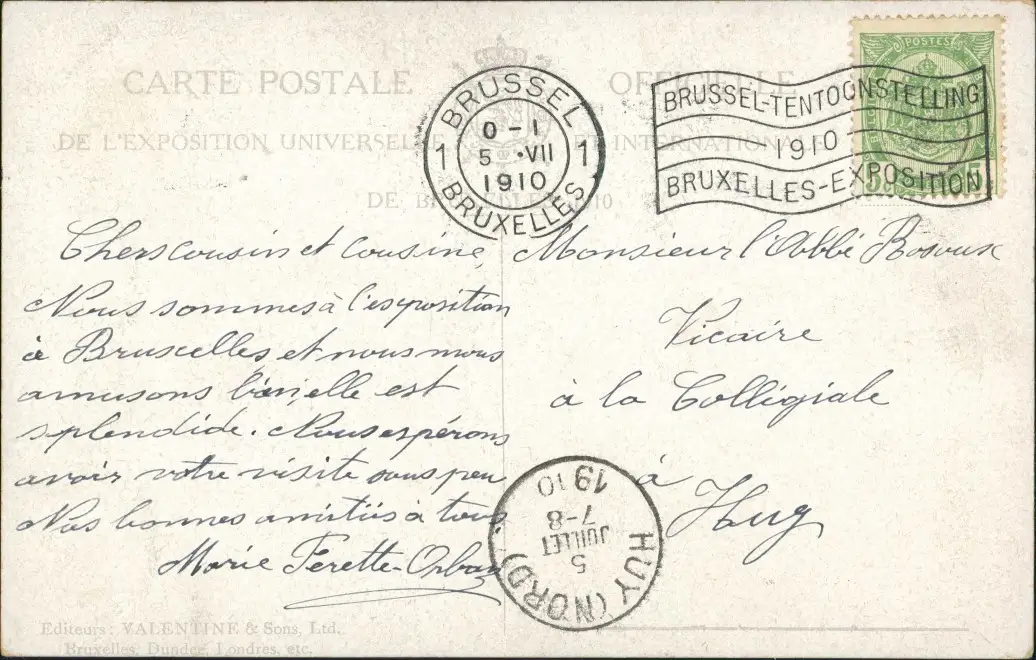 CARTE POSTALE OFFICIELLE
DE L'EXPOSITION UNIVERSELLE ET INTERNATIONALE
DE BRUXELLES 1910
BRUSSEL
0 - 1
1 5 VII 1
1910
BRUXELLES
BRUSSEL-TENTOONSTELLING
1910
BRUXELLES-EXPOSITION
POSTES
5 5
Chers cousin et cousine,
Nous sommes à l'exposition
à Bruxelles et nous nous
amusons bien, elle est
splendide. Nous espérons
avoir votre visite sous peu
Nos bonnes amitiés à tous.
Marie Ferette-Orban
Monsieur l'Abbé
Vicaire
à la Collégiale
à
Huy
HUY (NORD)
5
JUILLET
7-8
1910
Editeurs: VALENTINE & Sons, Ltd.
Bruxelles, Dundee, Londres, etc.